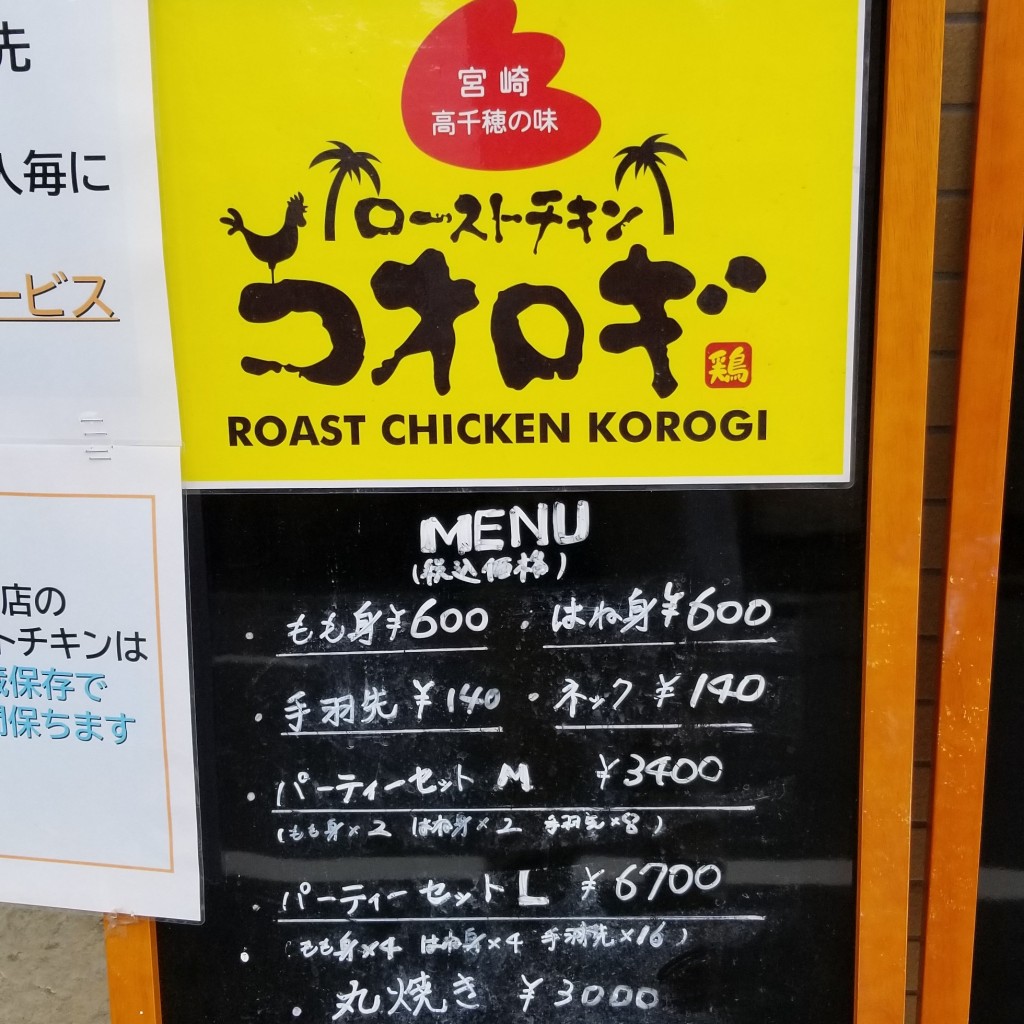 先
人毎に
ービス
店の
トチキンは
蔵保存で
間保ちます
宮崎
高千穂の味
ローストチキン
コオロギ
鶏
ROAST CHICKEN KOROGI
MENU
(税込価格)
・もも身¥600 ・はね身¥600
・手羽先¥140 ・ネック¥140
・パーティーセット M ¥3400
(もも身×2 はね身×2 手羽先×8)
・パーティーセット L ¥6700
(もも身×4 はね身×4 手羽先×16)
・丸焼き ¥3000